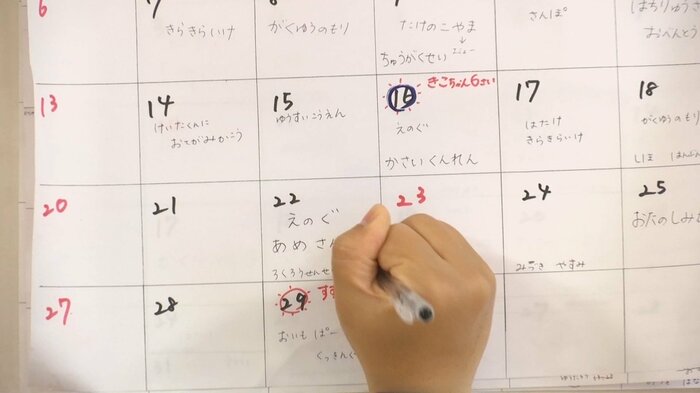 6
7
8
9
きらきらいけ
がくゆうのもり
たけのこやま
↓
ちゅうがくせい
さんぽ
はちりゅうさ
おべんとう
13
14
15
16
きこちゃん6さい
17
18
けいたくんに
おてがみかこう
ゆうすいこうえん
えのぐ
かさいくんれん
はたけ
きらきらいけ
がくゆうのもり
20
21
22
23
24
25
えのぐ
あめさん
ろくろうせんせ
みづき やすみ
おたのしみ
27
28
29
おいもぱー
くっきんぐ